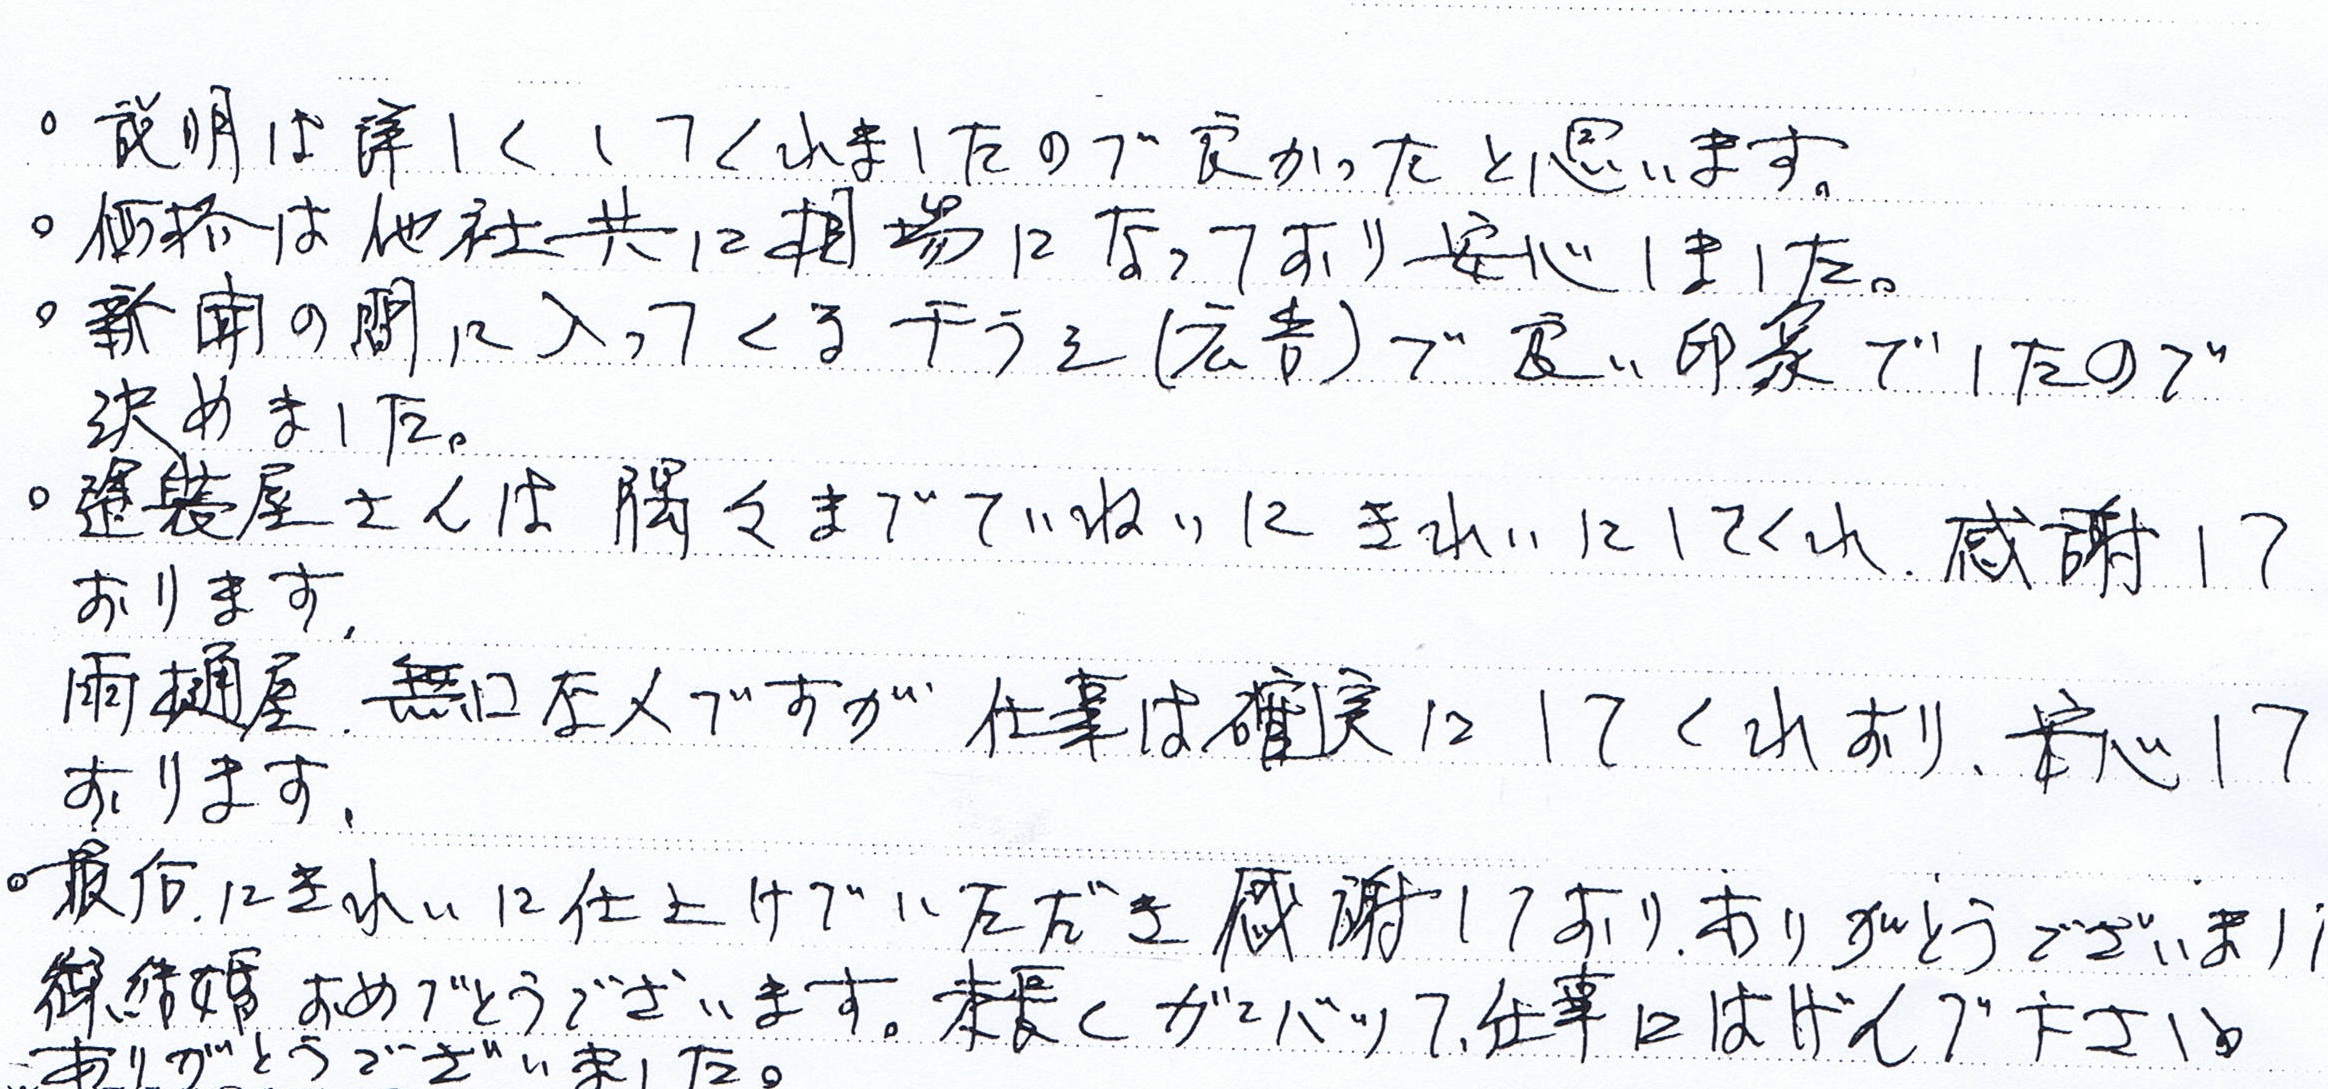 。説明は詳しくしてくれましたので良かったと思います。
。価格は他社共に相場になっており安心しました。
。新聞の間に入ってくるチラシ(広告)で良い印象でしたので
決めました。
。塗装屋さんは隅々までていねいにきれいにしてくれ、感謝して
おります、
雨樋屋、無口な人ですが仕事は確実にしてくれおり、安心して
おります、
。最后にきれいに仕上げていただき感謝しており、ありがとうございまし
御結婚おめでとうございます。末長くガンバッて、仕事にはげんで下さい。
ありがとうございました。